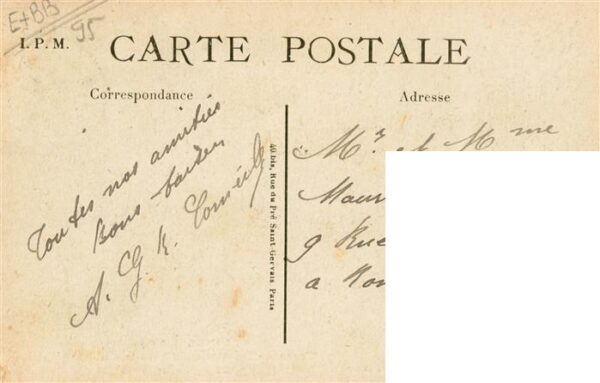 E+BB
95
I.P.M.
CARTE POSTALE
Correspondance
Adresse
Toutes nos amitiés
Bons baisers
A. G. K.
40 bis, Rue du Pré Saint-Gervais, Paris
Mr et Mme
Maur
9 Rue
a